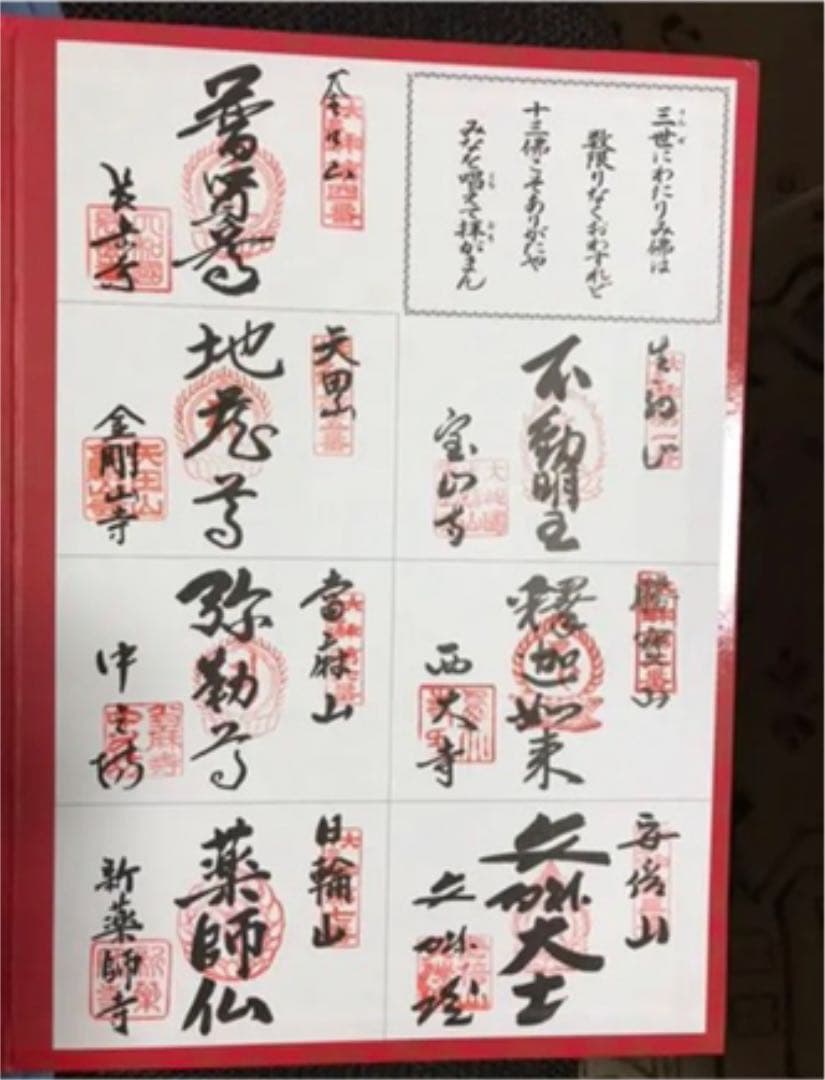 三世にわたりみ佛は
数限りなくおわすれど
十三佛こそありがたや
みなを唱えて拝がまん
生駒山
不動明王
宝山寺
勝寳山
釋迦如来
西大寺
安倍山
文殊大士
文殊院
普賢尊
長岳寺
矢田山
地蔵尊
金剛山寺
當麻山
弥勒尊
中之坊
日輪山
薬師仏
新薬師寺